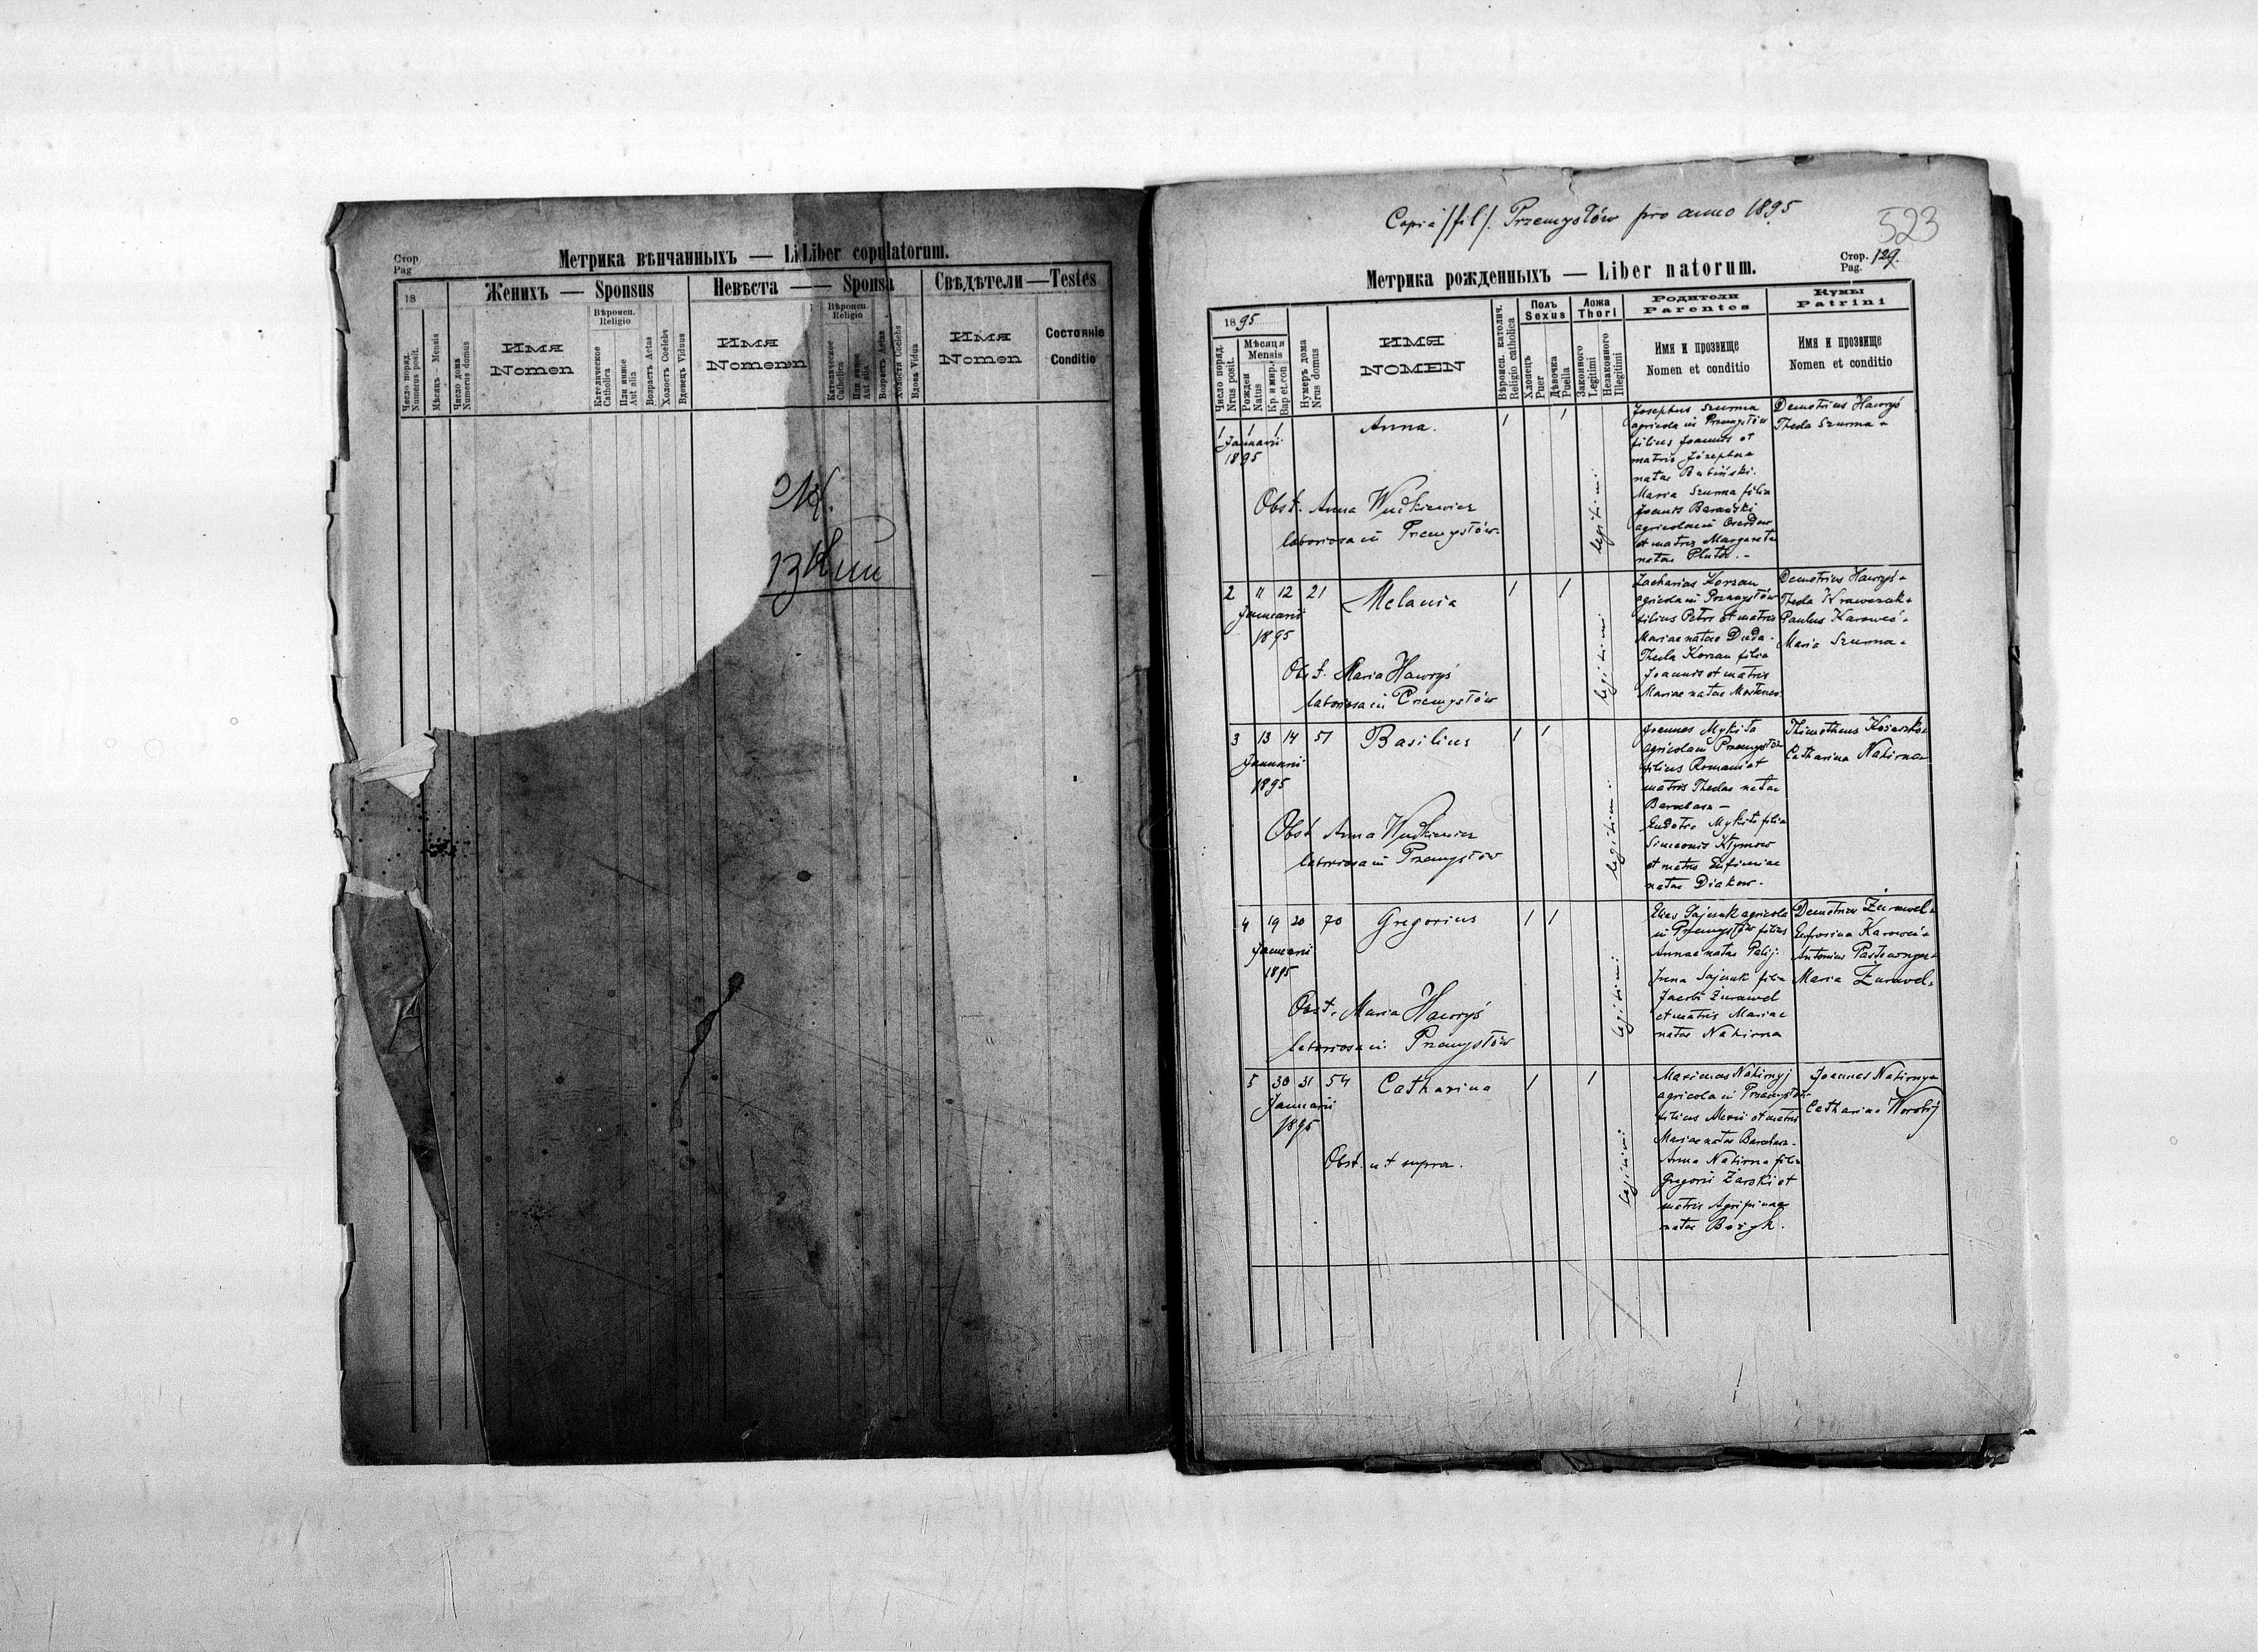 Стор
Pag
Метрика вѣнчанныхъ — Li Liber copulatorum.
18
Женихъ — Sponsus
Невѣста —— Sponsa
Свѣдѣтели—Testes
Число поряд.
Numerus posit.
Мѣсяцъ — Mensis
Число дома
Numerus domus
Имя
Nomen
Вѣроисп.
Religio
Католическое
Catholica
Или инное
Aut alia
Возрастъ Aetas
Холостъ Coelebs
Вдовецъ Viduus
Имя
Nomen
Вѣроисп.
Religio
Католическое
Catholica
Или инное
Aut alia
Возрастъ Aetas
Холоста Coelebs
Вдова Vidua
Имя
Nomen
Состояніе
Conditio
Copia /fil/. Przemysłów pro anno 1895
523
Стор.
Pag. 129.
Метрика рожденныхъ — Liber natorum.
1895
Число поряд.
Nrus posit.
Мѣсяця
Mensis
Рожден
Natus
Кр и мир.
Bap et con
Нумеръ дома
Nrus domus
ИМЯ
NOMEN
Вѣроисп. католич.
Religio catholica
Полъ
Sexus
Хлопецъ
Puer
Дѣвочка
Puella
Ложа
Thori
Законного
Legitimi
Незаконного
Illegitimi
Родители
Parentes
Имя и прозвище
Nomen et conditio
Кумы
Patrini
Имя и прозвище
Nomen et conditio
1 1 1 Anna. 1 1
Januarii
1895
legitimi
Josephus Szurma
agricola in Przemysłów
filius Joannis et
matris Józephae
natae
Maria Szurma filia
Joannis Barański
et matris Margareta
natae Pluta. -
Demetrius Hawryś
Thecla Szurma
Obst. Anna Wudkiewicz
laboriosa in Przemysłów.
2 11 12 21 Melania 1 1
Januarii
1895
legitimi
Zacharias Korzan
agricola in Przemysłów
filius Petri et matris
Mariae natae Duda.
Thecla Korzan filia
Joannis et matris
Mariae natae
Demetrius Hawryś
Thecla Krawczuk
Paulus
Maria Szurma
Obst. Maria Hawryś
laboriosa in Przemysłów
3 13 14 51 Basilius 1 1
Januarii
1895
legitimi
Joannes Mykita
agricola in Przemysłów
filius Romani et
matris Theclae natae
Barabasz —
Eudotia Mykita filia
Simeonis Klymow
et matris Eufimiae
natae Diakow.
Thimotheus
Catharina Nahirna
Obst Anna Wudkiewicz
laboriosa in Przemysłów
4 19 20 70 Gregorius 1 1
Januarii
1895
legitimi
Elias Sajuuk agricola
in Przemysłów filius
Annae natae Palij.
Irena Sajuuk filia
Jacobi Żurawel
et matris Mariae
natae Nahirna
Demetrius Żurawel
Eufrosina
Antonius
Maria Żurawel
Obst. Maria Hawryś
laboriosa in Przemysłów
5 30 31 54 Catharina 1 1
Januarii
1895
legitimi
Maximus Nahirnyj
agricola in Przemysłów
filius et matris
Mariae natae Barabasz.
Anna Nahirna filia
Gregorii Żarski et
matris Agripinae
natae
Joannes Nahirny
Catharina Worobij
Obst. ut supra.